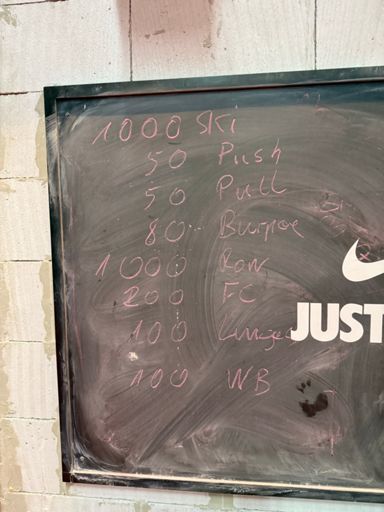 1000 Ski
50 Push
50 Pull
80 Burpee
1000 Row
200 FC
100 Lunges
100 WB
JUST